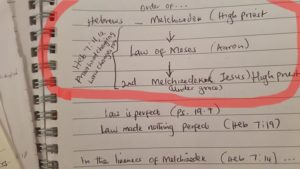 order of...
Hebrews - Melchizedek (High Priest
Heb 7:11,12
Priesthood changing
Law changing
Law of Moses (Aaron)
2nd Melchizedek (Jesus) High Priest
(under grace)
Law is perfect (Ps. 19:7)
Law made nothing perfect (Heb 7:19)
In the likeness of Melchizedek (Heb 7:14) ...